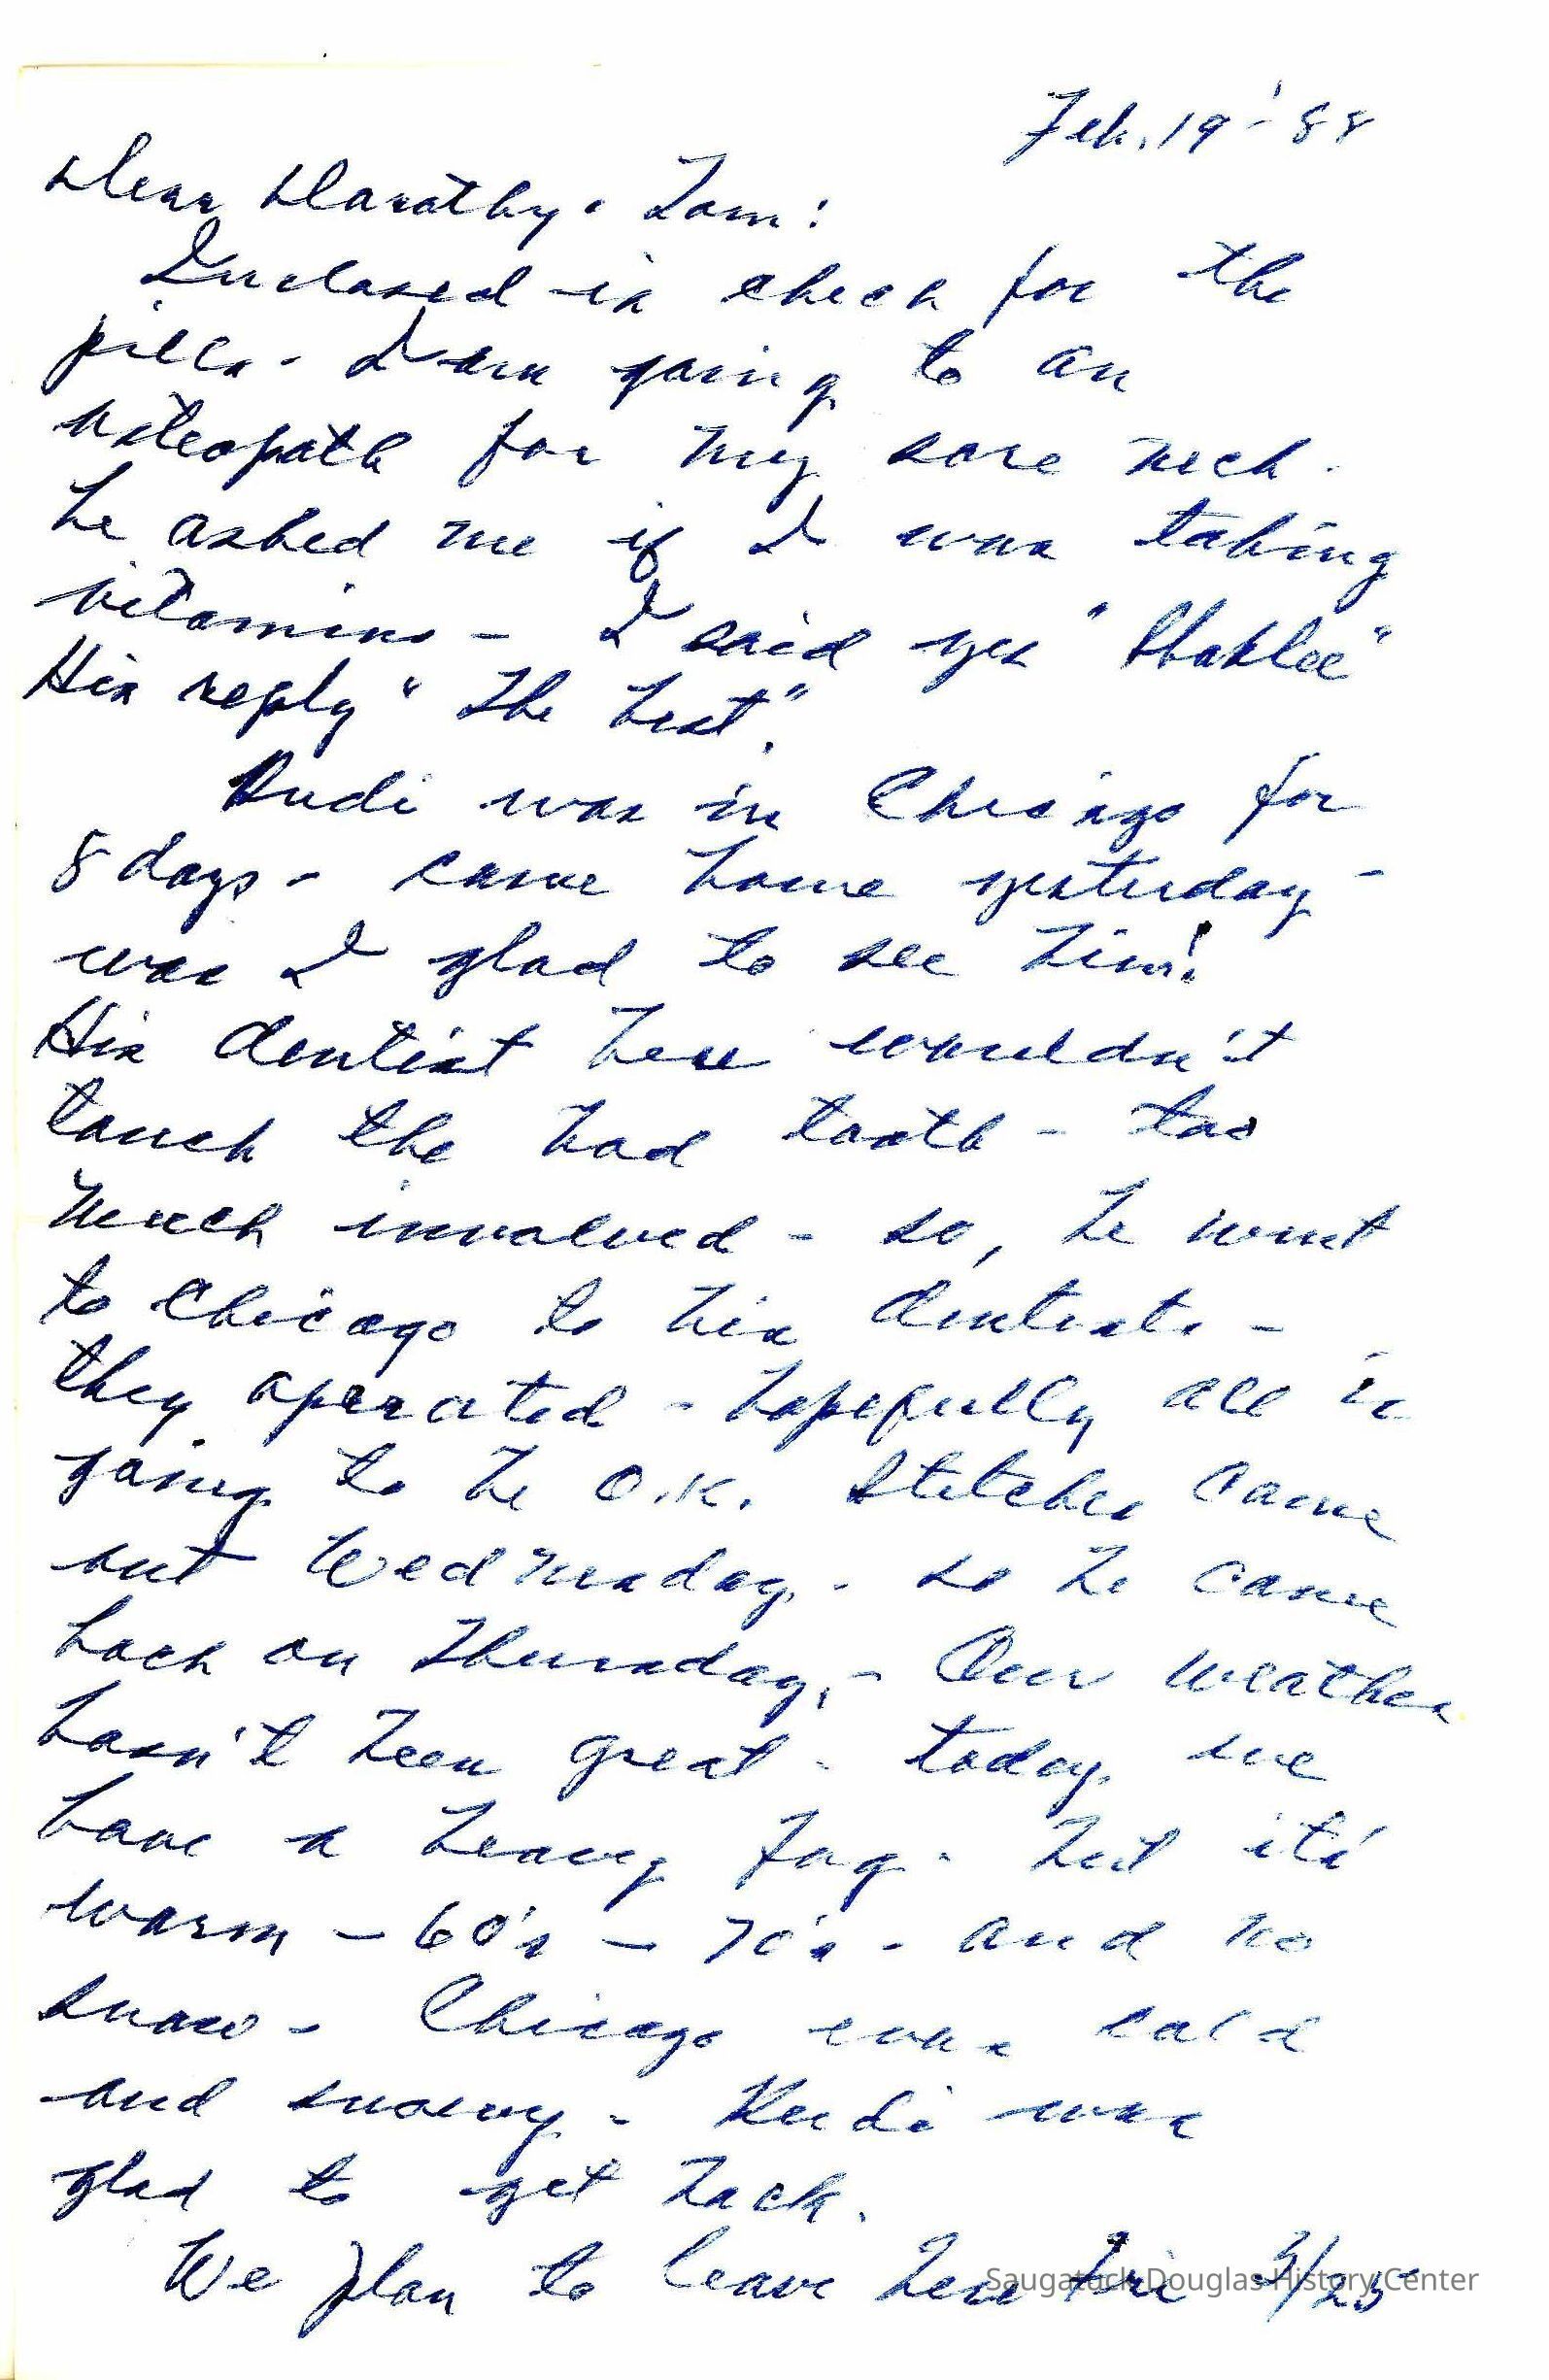 Feb. 19 - '88
Dear Dorothy & Tom:
Inclosed is check for the
pills - I am going to an
osteopath for my sore neck -
he asked me if I was taking
vitamins - I said yes "Shaklee"
His reply "The best".
Rudi was in Chicago for
8 days - came home yesterday -
was I glad to see him!
His dentist here wouldn't
touch the bad tooth - too
much involved - so, he went
to Chicago to his dentists -
they operated - hopefully all is
going to be O.K. Stitches came
out Wednesday - so he came
back on Thursday, - Our weather
hasn't been great - today we
have a heavy fog - but it's
warm - 60's - 70's - and no
snow - Chicago was cold
and snowy - Rudi was
glad to get back.
We plan to leave here Fri 3/25
Saugatuck Douglas History Center